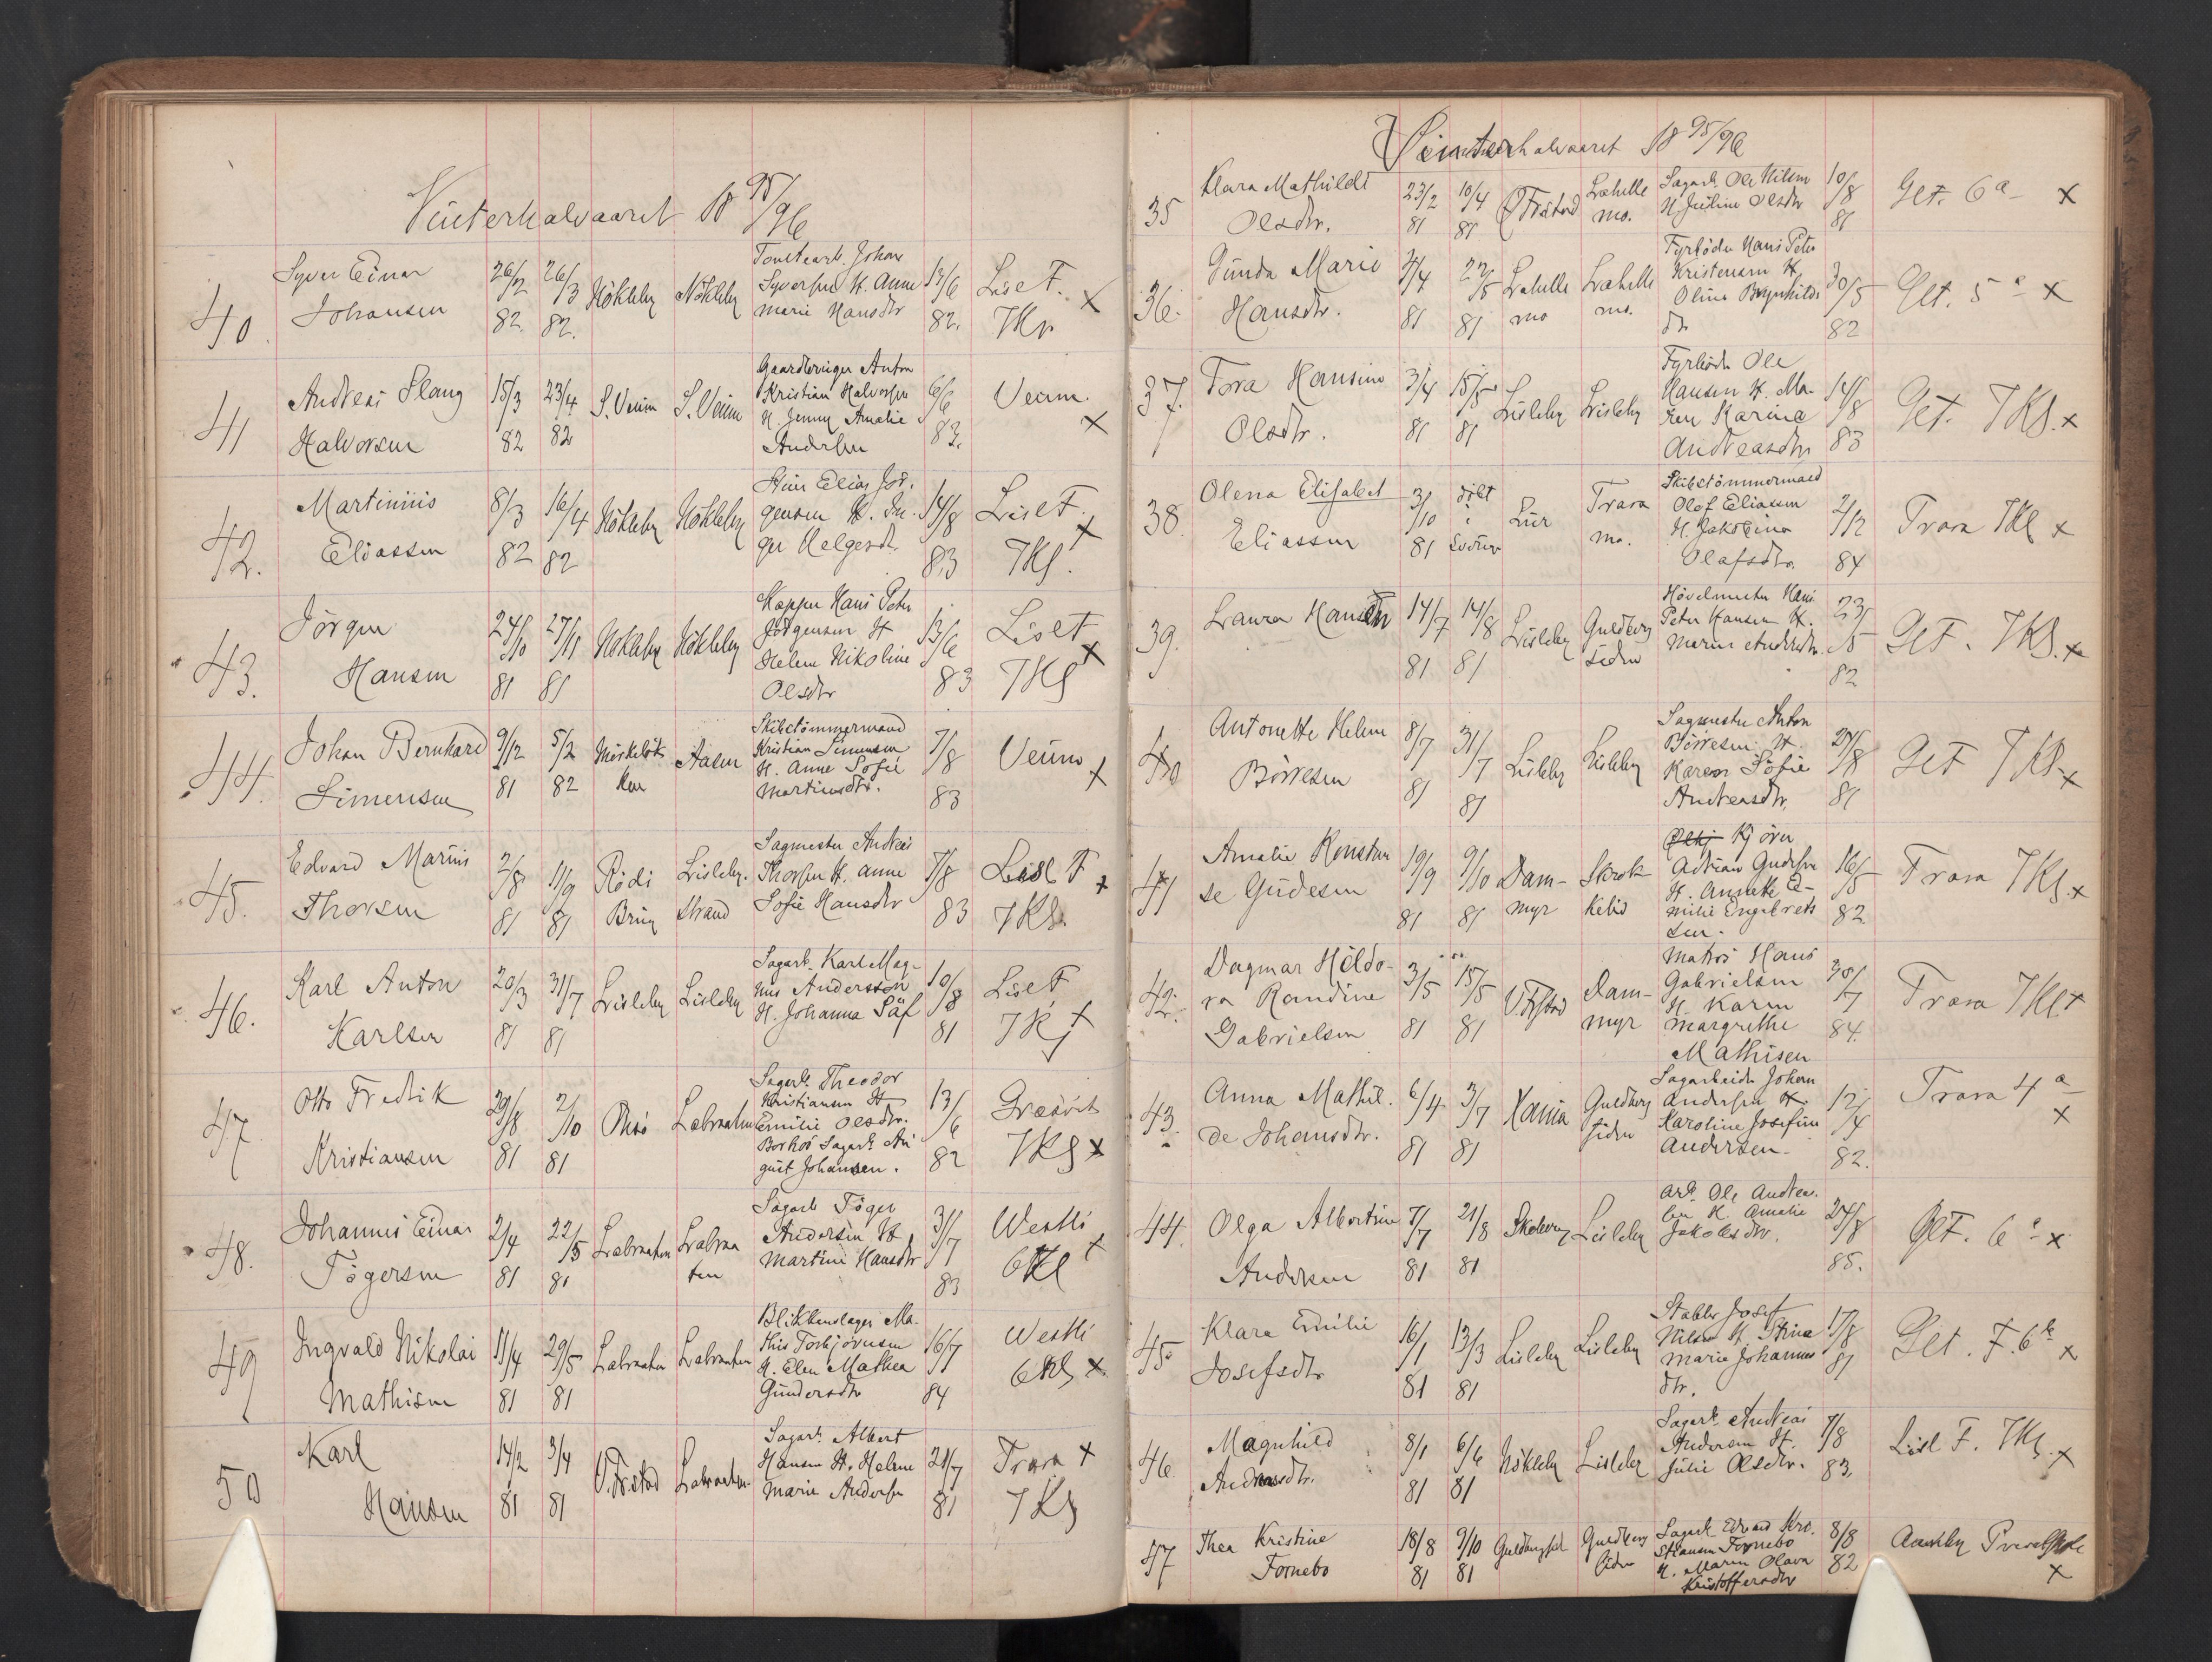 Vinterhalvaaret 18 95/96
40. Syver Einar Johansen 26/2 82. 26/3 82. Nökleby Nökleby Johan Syversen H. Anne Marie Hansdtr 14/6 82. Lisl. F. 7 Kl. x
41 Andreas Slang Halvorsen 15/3 82 23/4 82 S. Veum S. Veum Gaardbruger Anton Kristian Halvorsen H. Jenny Amalie Andersen 6/6 83. Veum. x
42. Martinius Eliassen 8/3 82 16/4 82 Nökleby Nökleby Elias Jör-
gensen H. In-
ger Helgesdtr. 14/8 83 Lisl. F. 7 Kl. x
43. Jörgen Hansen 24/10 81 27/11 81 Nökleby Nökleby Hans Peter Jörgensen H Helene Nikoline Olsdtr 13/6 83 Lisl F 7 Kl x
44. Johan Bernhard Simensen 9/12 81 5/2 82 Aasen Skibstömmermand Kristian Simensen H. Anne Sofie Martinsdtr. 7/8 83 Veum x
45. Edvard Marius Thorsen 2/8 81 11/9 81 Rödi Brug Lisleby. Strand Sagmester Andreas Thorsen H. Anne Sofie Hansdtr 7/8 83 Lisl F 7 Kl. x
46. Karl Anton Karlsen 20/3 81 31/7 81 Lisleby Lisleby Sagarb. Karl Mag-
nus Andersson H. Johanna Säf 10/8 81 Lisl F 7 Kl x
47 Otto Fredrik Kristiansen 29/8 81 2/10 81 Labraaten Sagarb. Theodor Kristiansen H Emilie Olsdtr. Bor hos Sagarb. Au
gust Johansen. 13/6 82 Græsvik 7 Kl x
48. Johannes Einar Tögersen 2/4 81 22/5 81 Labraaten Labraa
ten Sagarb Töger Andersen H Martine Hansdtr 31/7 83 Westli 6 Kl x
49 Ingvald Nikolai Mathisen 11/4 81 29/5 81 Labraaten Labraaten Blikkenslager Ma-
this Torbjörnsen H. Elen Mathea Gundersdtr 16/7 84 Westli 6 Kl x
50 Karl Hansen 14/2 81 3/4 81 V. Frstad Labraaten Sagarb. Albert Hansen H. Helene Marie Andersen 21/7 81 Trara x 7 Kl
Vinterhalvaaret 18 95/96
35 Klara Mathilde Olsdtr. 23/2 81 10/4 81 Ö Frstad Labelle
mo. Sagarb. Ole Nilsen H Juline Olsdtr 10/8 81 Glt. 6 a x
36. Gunda Marie Hansdtr. 4/4 81 81 Labelle
mo Labelle
mo. Fyrböder Hans Peter Kristensen H Oline Brynhilds
dtr 30/5 82 Glt. 5 x
37. Tora Hansine Olsdtr. 3/4 81 15/5 81 Lisleby Lisleby Fyrböder Ole Hansen H. Ma-
ren Karina Andreasdtr 14/8 83 Glt. 7 Kl. x
38. Olena Elisabet Eliassen 3/10 81 döbt i Lur Trara
mo. Skibstömmermand Olof Eliassen H. Jakobina Olafsdtr. 2/12 84 Trara 7 Kl x
39. Laura Hansdtr 14/7 81 14/8 81 Lisleby Guldberg
siden Hövelmester Hans Peter Hansen H. Marie Andersdtr. 23/5 82 Gl F. 7 Kl. x
40 Antonette Helene Börresen 8/7 81 31/7 81 Lisleby Lisleby Sagmester Anton Börresen H. Karen Sofie Andreasdtr. 27/8 81 Gl F 7 Kl. x
41 Amalie Konstan
se Gudesen 19/9 81 9/10 81 Dam-
myr Kjörer Adrian Gudesen H. Annette E-
milie Engebret
sen. 16/5 82. Trara 7 Kl. x
42. Dagmar Hildo-
ra Randine Gabrielsen 3/5 81 15/5 81 V. Frstad Dam-
myr Matros Hans Gabrielsen H. Karen Margrethe Mathisen 30/7 84. Trara 7 Kl x
43. Anna Mathil-
de Johansdtr. 6/4 81 3/7 81 Xania Guldberg
siden Sagarbeider Johan Andersen H. Karoline Josefine Andersen 12/4 82. Trara 4 a x
44. Olga Albertine Andersen 7/7 81 21/8 81 Skoleveg Lisleby Arb. Ole Andrea-
sen H. Amalie Jakobsdtr. 27/8 85. Gl F. 6 x
45. Klara Emilie Josefsdtr 16/1 81 13/3 81 Lisleby Lisleby Stabler Josef Nilsen H. Stina Marie Johannes
dtr. 17/8 81 Glt. F. 6 x
46 Magnhild Andreasdtr. 8/1 81 6/6 81 Nökleby Lisleby Sagarb. Andreas Andersen H. Julie Olsdtr. 7/8 83. Lisl F. 7 Kl. x
47 Thea Kristine Fornebo 18/8 81 9/10 81 Guldbergsid Guldberg
siden Sagarb. Edvard Kri-
stiansen Fornebo H. Maren Olava Kristoffersdtr 8/8 82 x